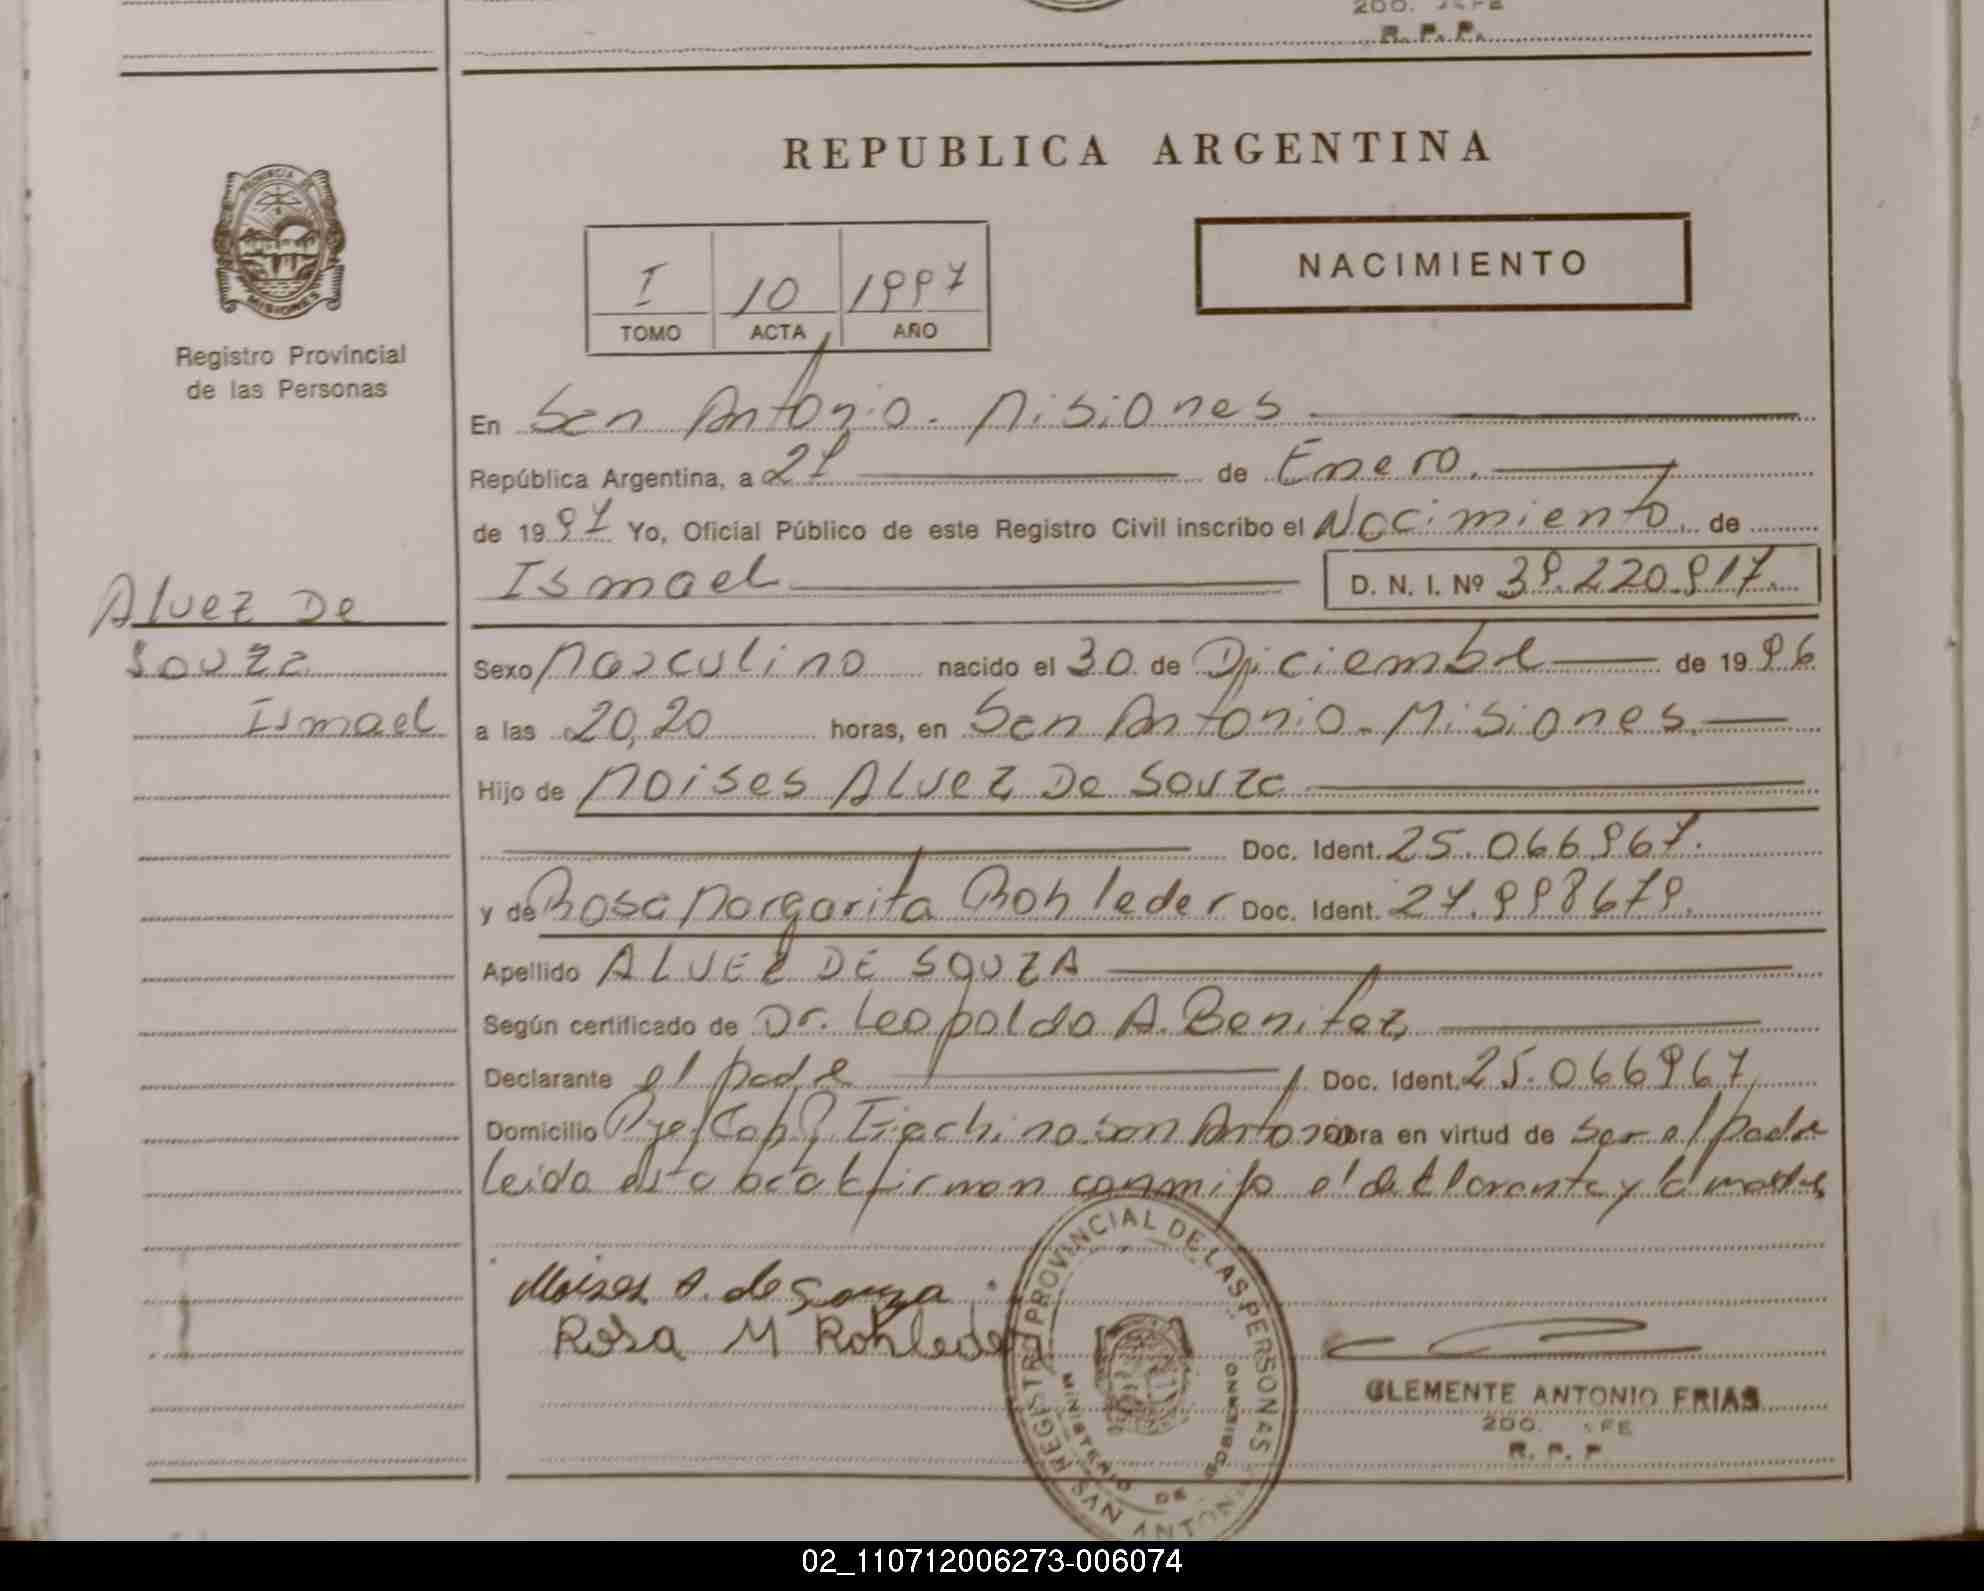 200. JEFE
R. P. P.
REPUBLICA ARGENTINA
PROVINCIA DE
MISIONES
Registro Provincial
de las Personas
NACIMIENTO
I 10 1997
TOMO ACTA AÑO
En San Antonio - Misiones
República Argentina, a 21 de Enero
de 1997 Yo, Oficial Público de este Registro Civil inscribo el Nacimiento de
Ismael D. N. I. Nº 39.220.917
Alvez De
Souza
Ismael
Sexo Masculino nacido el 30 de Diciembre de 1996
a las 20,20 horas, en San Antonio - Misiones
Hijo de Moises Alvez De Souza
Doc. Ident. 25.066.967.
y de Rosa Margarita Rohleder Doc. Ident. 27.998679.
Apellido ALVEZ DE SOUZA
Según certificado de Dr. Leopoldo A. Benitez
Declarante el padre Doc. Ident. 25.066967
Domicilio San Antonio obra en virtud de ser el padre
leida esta acta firman conmigo el declarante y la madre
Moises A. de Souza
Rosa M Rohleder
REGISTRO PROVINCIAL DE LAS PERSONAS
MINISTERIO DE GOBIERNO
SAN ANTONIO
CLEMENTE ANTONIO FRIAS
200. JEFE
R. P. P.
02_110712006273-006074